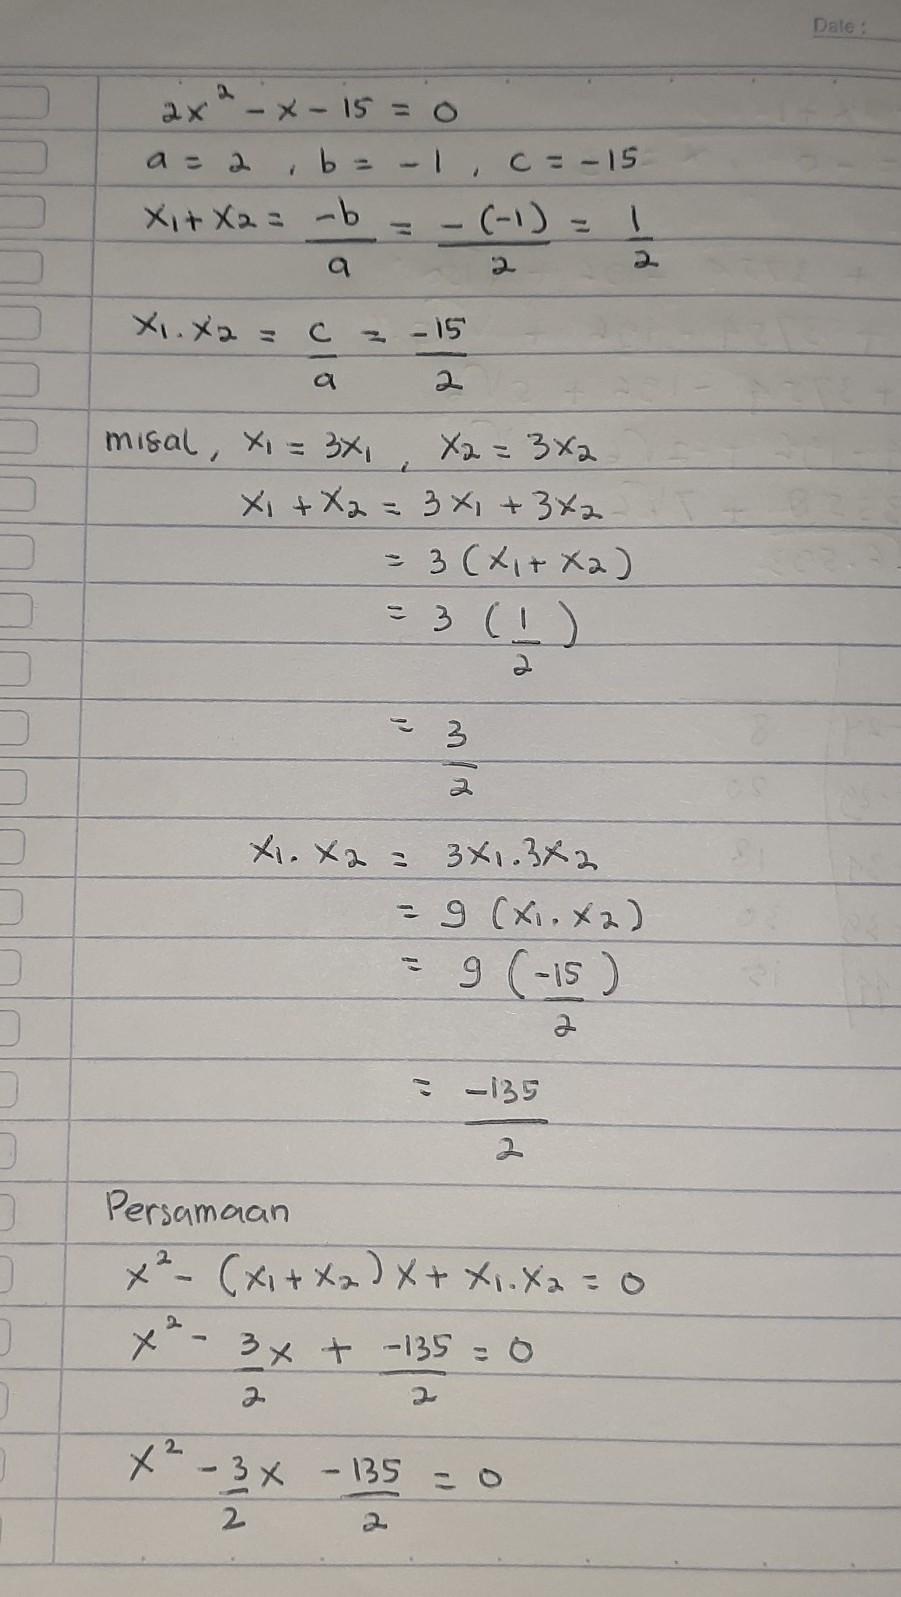 Date :
2x² - x - 15 = 0
a = 2 , b = -1 , c = -15
x₁ + x₂ = -b/a = -(-1)/2 = 1/2
x₁ . x₂ = c/a = -15/2
misal, x₁ = 3x₁ , x₂ = 3x₂
x₁ + x₂ = 3x₁ + 3x₂
= 3 (x₁ + x₂)
= 3 (1/2)
= 3/2
x₁ . x₂ = 3x₁ . 3x₂
= 9 (x₁ . x₂)
= 9 (-15/2)
= -135/2
Persamaan
x² - (x₁ + x₂) x + x₁ . x₂ = 0
x² - 3/2 x + -135/2 = 0
x² - 3/2 x - 135/2 = 0